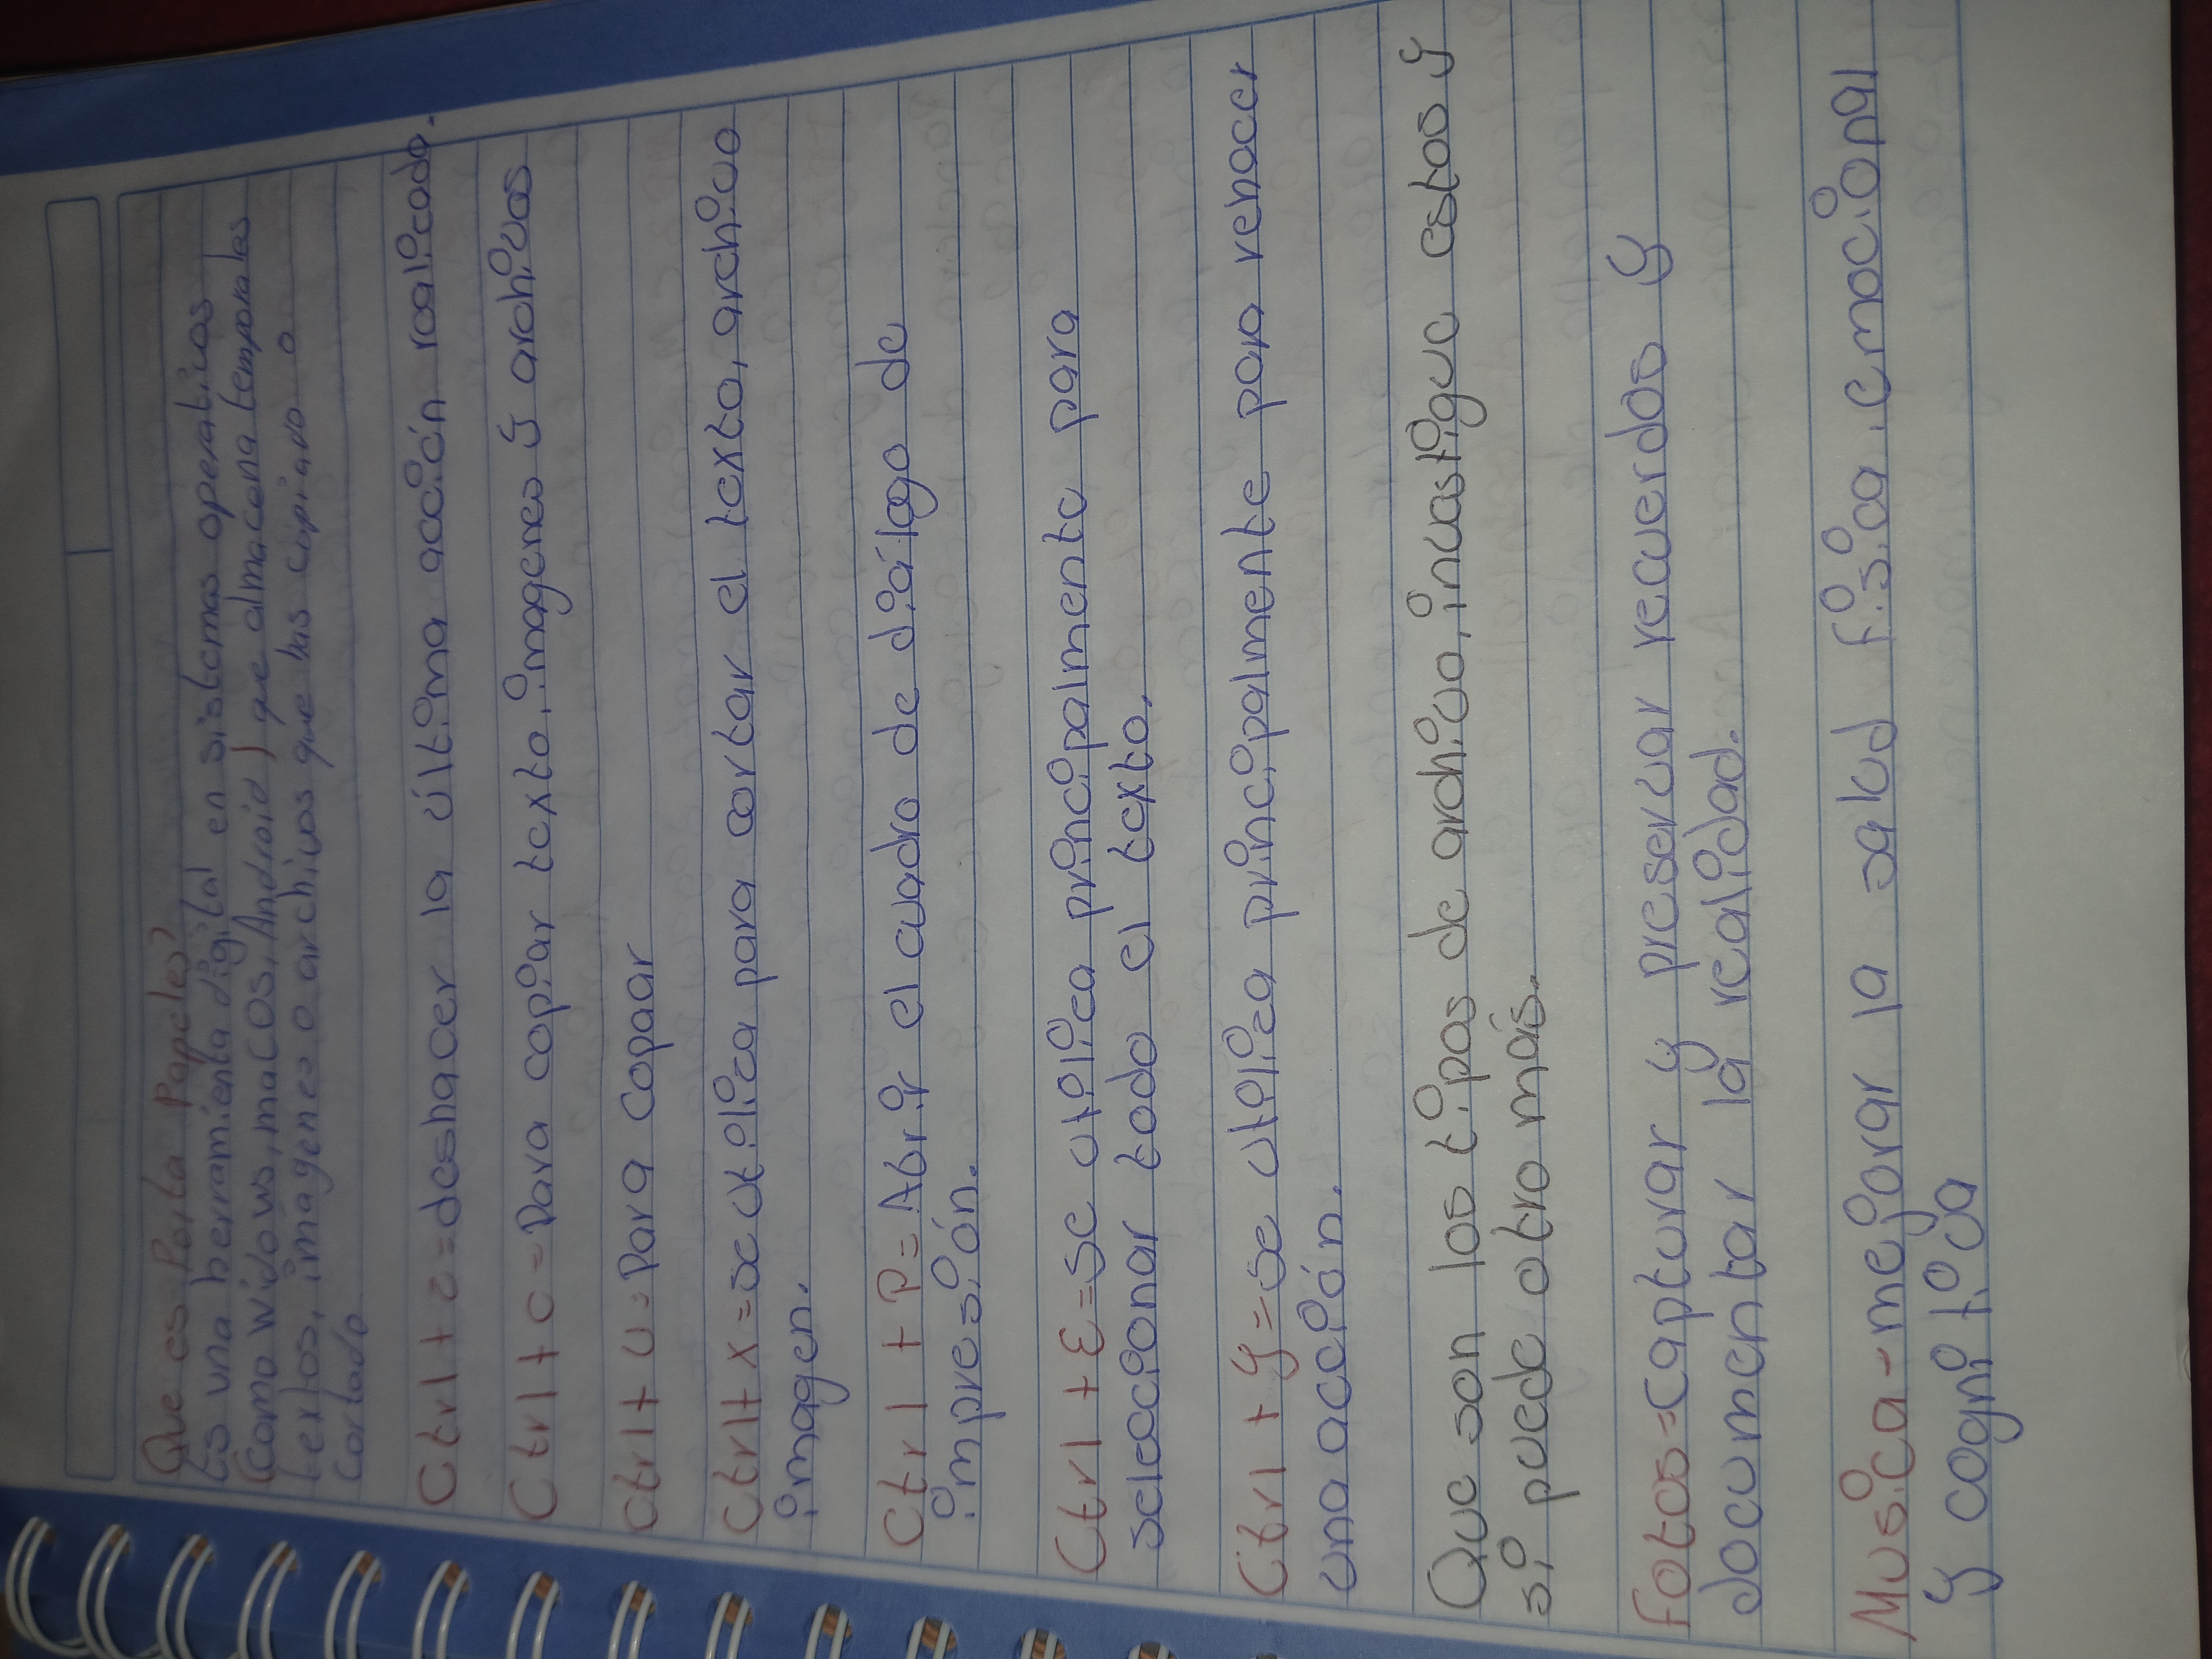 Que es Porta Papeles?
Es una herramienta digital en sistemas operativos
(como widows, macOS, Android) que almacena temporales
textos, imagenes o archivos que has copiavo o
cortado
Ctrl+z=deshacer la última acción realizado.
Ctrl+c=Para copiar texto, imagenes y archivos
Ctrl+v=Para copaar
Ctrl+x=se utiliza para cortar el texto, archivo
imagen.
Ctrl+P=Abrir el cuadro de diálogo de
impresión.
Ctrl+E=se utiliza principalmente para
seleccionar todo el texto.
Ctrl+y=se utiliza principalmente para renocer
una acción.
Que son los tipos de archivo, investigue estos y
si puede otro más.
Fotos=capturar y preservar recuerdos y
documentar la realidad.
Musica-mejorar la salud fisica, emocional
y cognitica